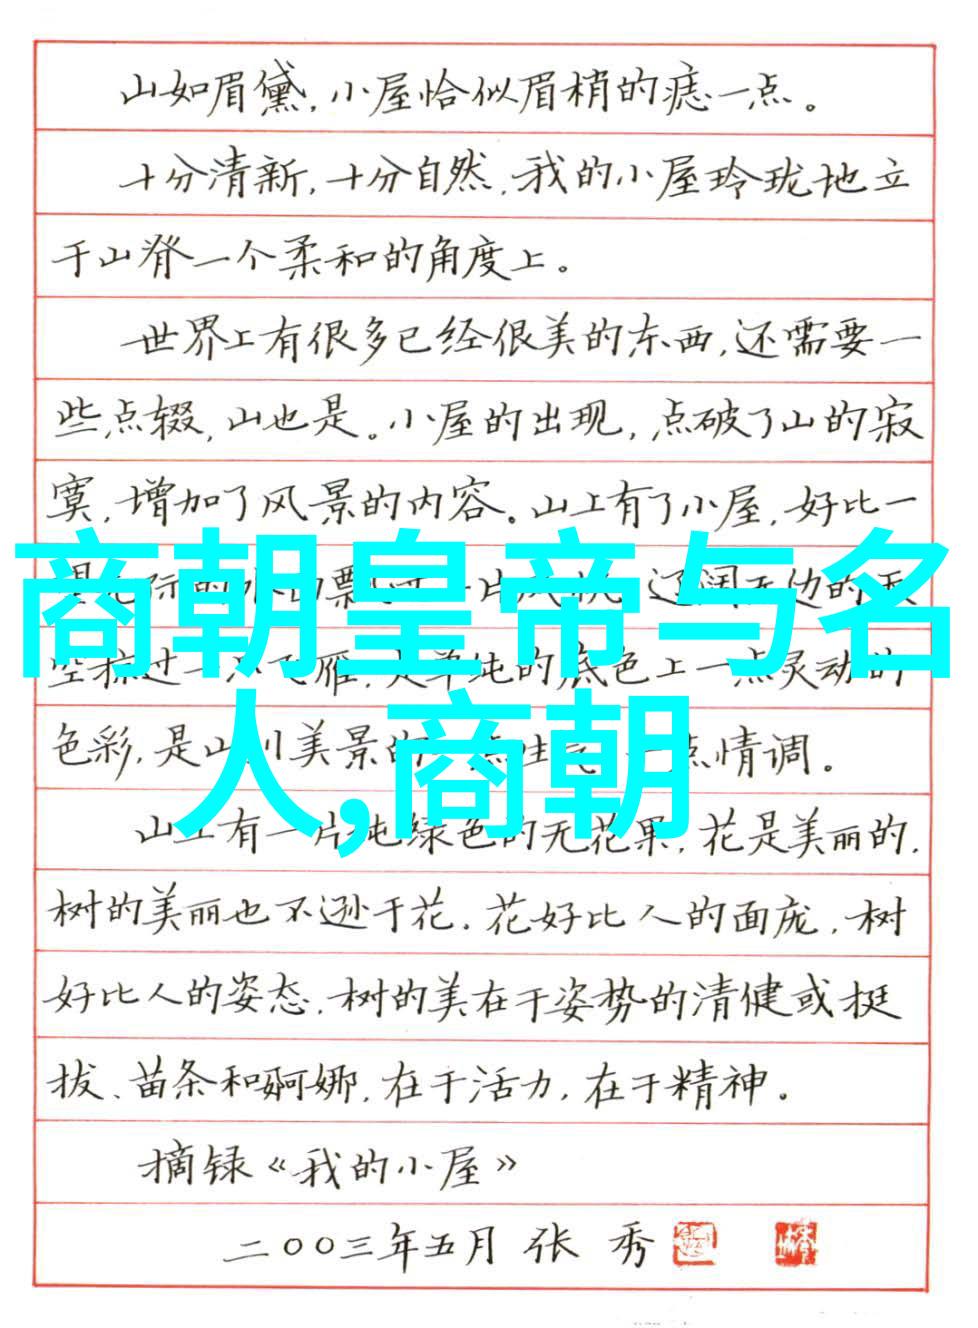 山如眉黛，小屋恰似眉梢的痣一点。
十分清新，十分自然，我的小屋玲珑地立
于山脊一个柔和的角度上。
世界上有很多已经很美的东西，还需要一
些点缀，山也是。小屋的出现，点破了山的寂
寞，增加了风景的内容。山上有了小屋，好比一
商朝皇帝与名
人,商朝
片 辽阔无边的天
空掠过一 雁，是单纯的底色上一点灵动的
色彩，是山川美景的 点 情调。
山上有一片纯绿色的无花果，花是美丽的，
树的美丽也不逊于花。花好比人的面庞，树
好比人的姿态。树的美在于姿势的清健或挺
拔、苗条和婀娜，在于活力，在于精神。
摘录《我的小屋》
二〇〇三年五月 张 秀